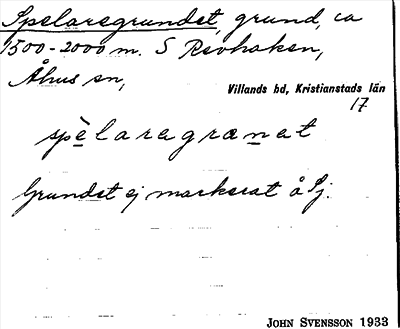 Spelaregrundet, grund, ca
1500-2000 m. S Revhaken,
Åhus sn,
Villands hd, Kristianstads län
17
spèlaregrænet
Grundet ej markerat å Sj.
JOHN SVENSSON 1933